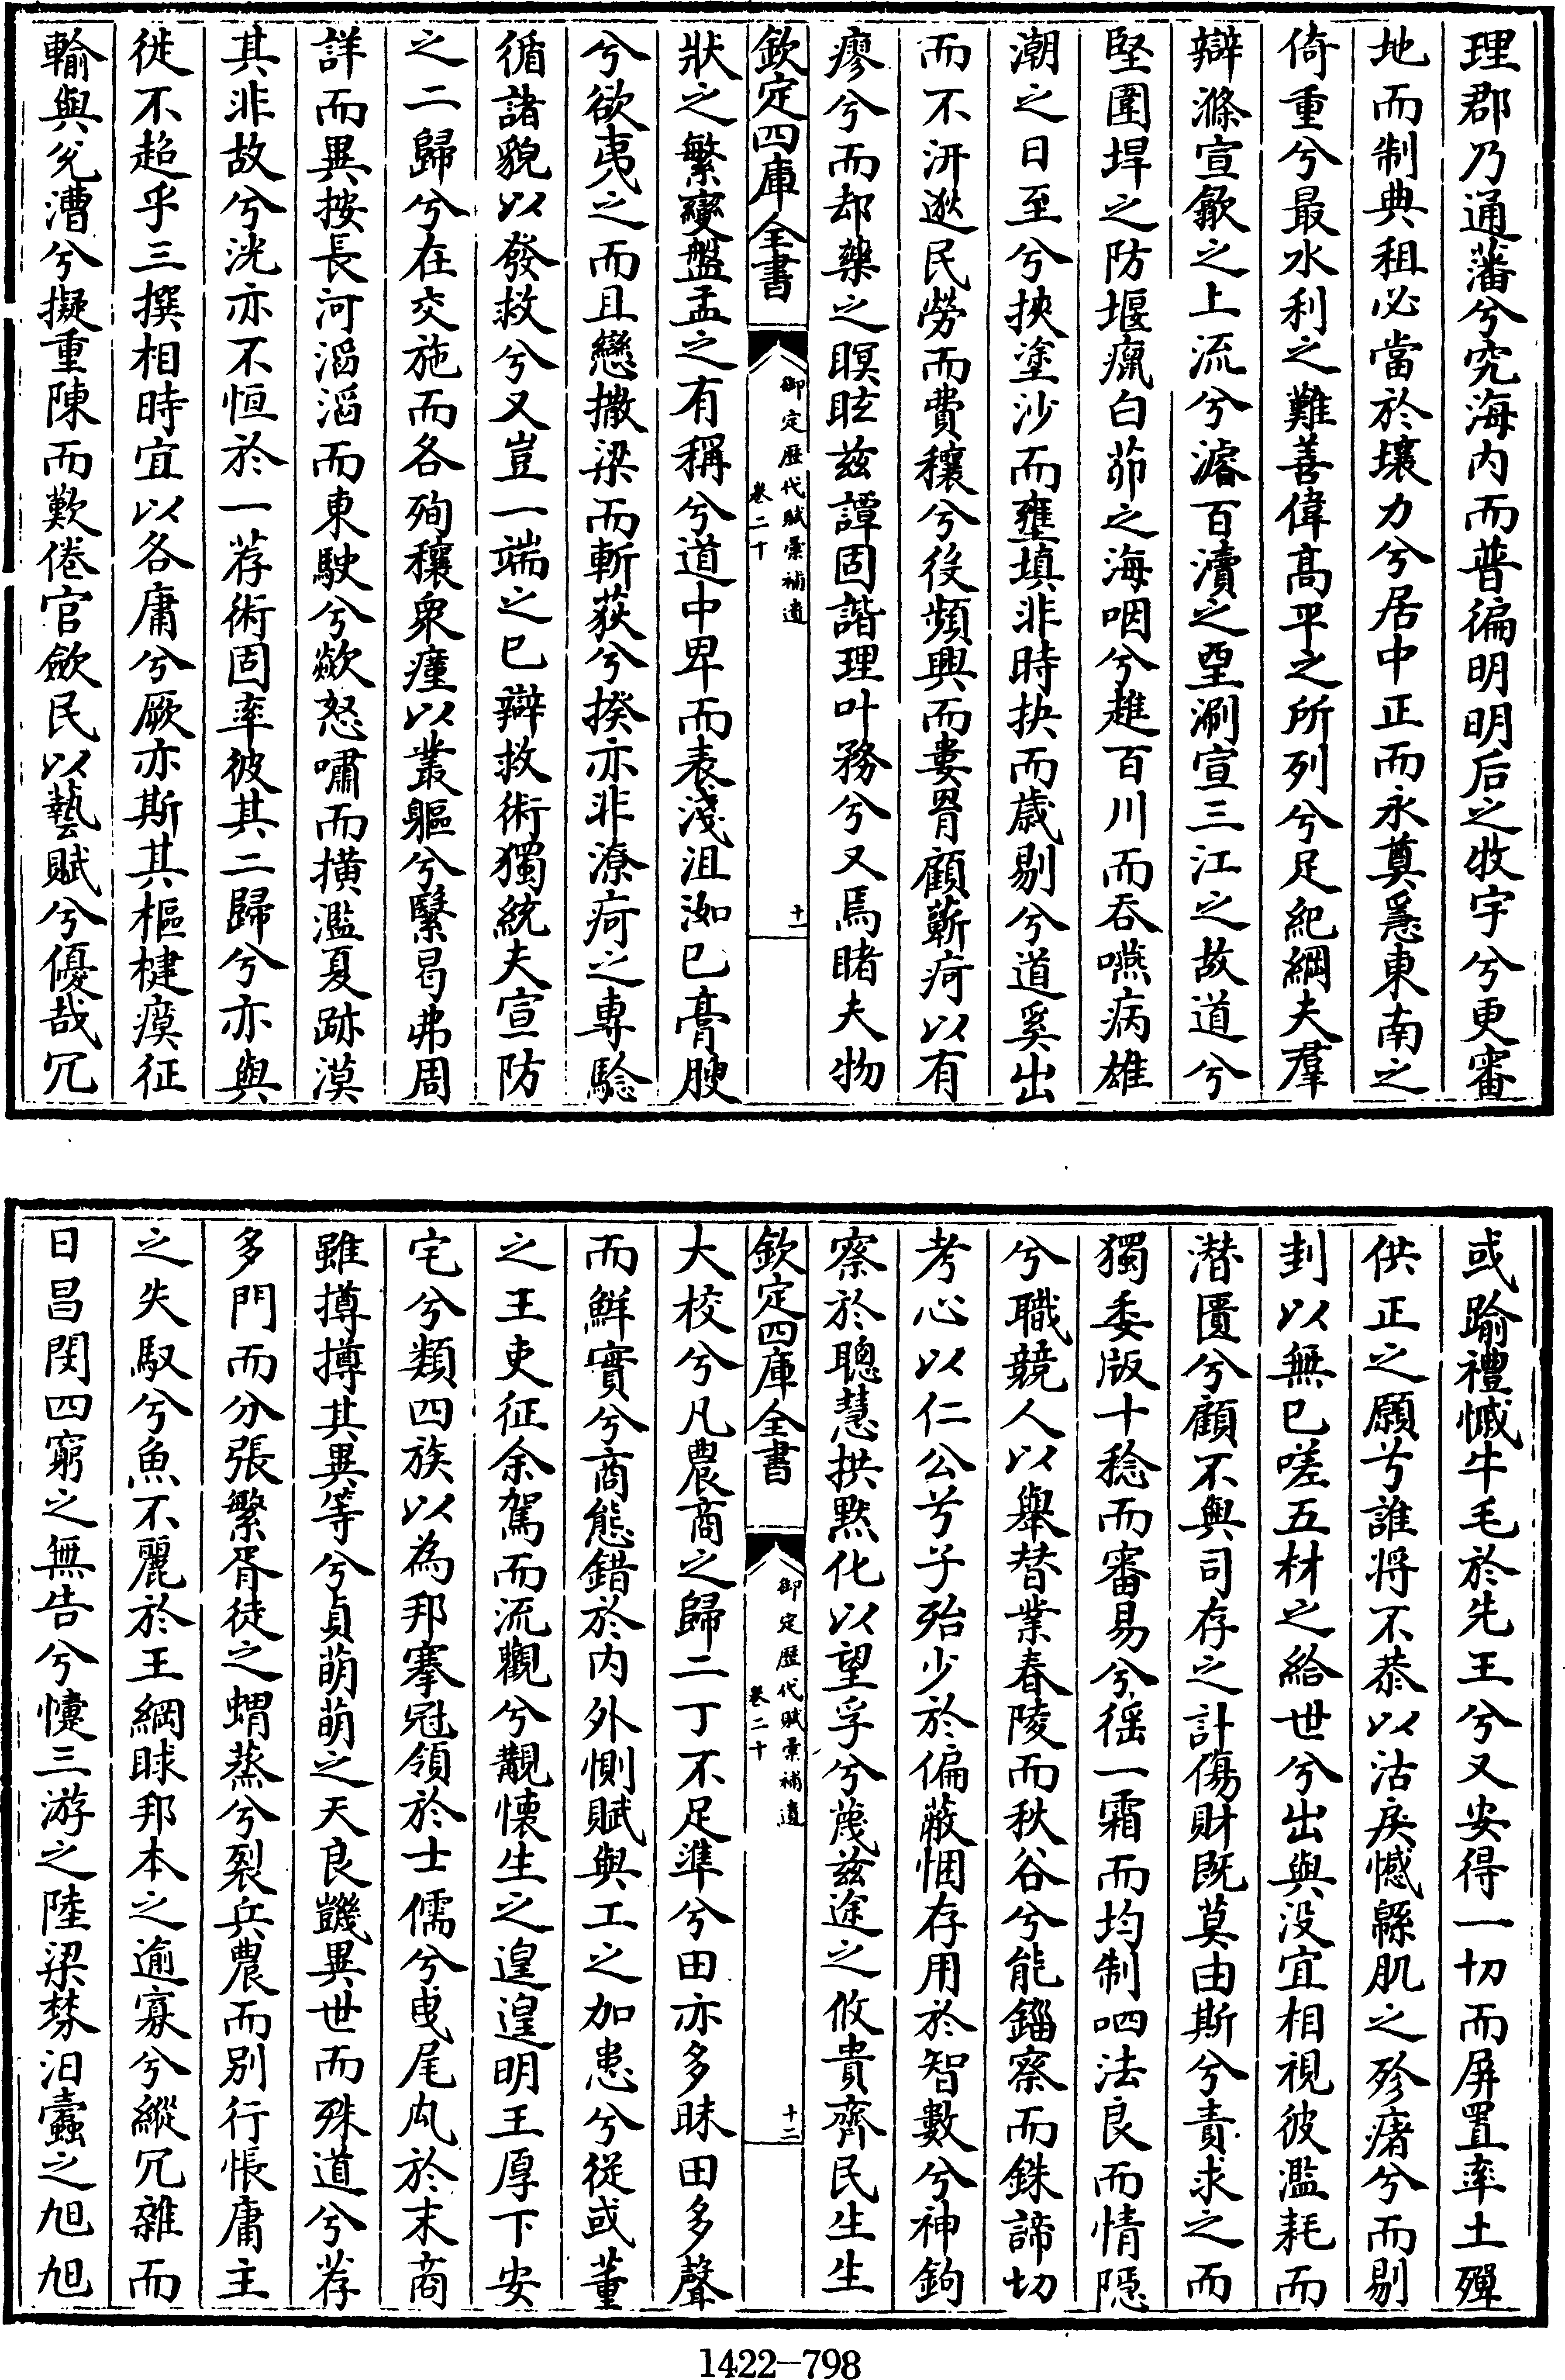 理郡乃通藩兮究海内而普徧明明后之牧宇兮更審
地而制典租必當於壤力兮居中正而永奠蒽東南之
倚重兮最水利之難善偉髙平之所列兮足紀綱夫羣
辯滌宣歙之上流兮濬百瀆之堙涮宣三江之故道兮
堅圍垾之防堰瘋白茆之海咽兮趡百川而吞嚥病雄
潮之日至兮挾塗沙而壅填非時抉而歳剔兮道奚出
而不汧遬民勞而費穰兮役頻興而婁罥顧蘄疴以有
瘳兮而却藥之瞑眩兹譚固諧理叶務兮又焉睹夫物
欽定四庫全書
御定歴代賦彚補遺
卷二十
十一
狀之繁變盤盂之有稱兮道中卑而表淺沮洳已膏腴
兮欲夷之而且戀撒梁而斬荻兮揆亦非潦疴之專騐
循諸貌以發救兮又豈一端之已辯救術獨統夫宣防
之二歸兮在交施而各殉穰衆瘽以叢軀兮繄曷弗周
詳而異按長河滔滔而東駛兮歘怒嘯而橫濫夏跡漠
其非故兮洸亦不恒於一荐術固率彼其二歸兮亦與
徙不超乎三撰相時宜以各庸兮厥亦斯其樞楗瘼征
輸與兊漕兮擬重陳而歎倦官歛民以藝賦兮優哉冗
或踰禮慽牛毛於先王兮又安得一切而屏置率土殫
供正之願兮誰将不恭以沽戾憾緜肌之殄瘏兮而剔
刲以無已嗟五材之給世兮出與没宜相視彼濫耗而
潜匱兮顧不與司存之計傷財既莫由斯兮責求之而
獨委版十稔而審易兮徭一霜而均制呬法良而情隱
兮職競人以舉替業春陵而秋谷兮能錙察而銖諦切
考心以仁公兮子殆少於偏蔽悃存用於智數兮神鉤
察於聰慧拱黙化以望孚兮蔑兹途之攸貴齊民生生
欽定四庫全書
御定歴代賦彚補遺
卷二十
十二
大校兮凡農商之歸二丁不足準兮田亦多昧田多聲
而鮮實兮商態錯於内外惻賦與工之加患兮從或董
之王吏征余駕而流觀兮覯懐生之遑遑明王厚下安
宅兮類四族以為邦搴冠領於士儒兮曵尾凢於末商
雖摶摶其異等兮貞萌萌之天良豑異世而殊道兮荐
多門而分張繁胥徒之蝟蒸兮裂兵農而别行悵庸主
之失馭兮魚不麗於王綱眽邦本之逾寡兮縱冗雜而
日昌閔四窮之無告兮悽三游之陸梁棼汨蠹之旭旭
1422—798